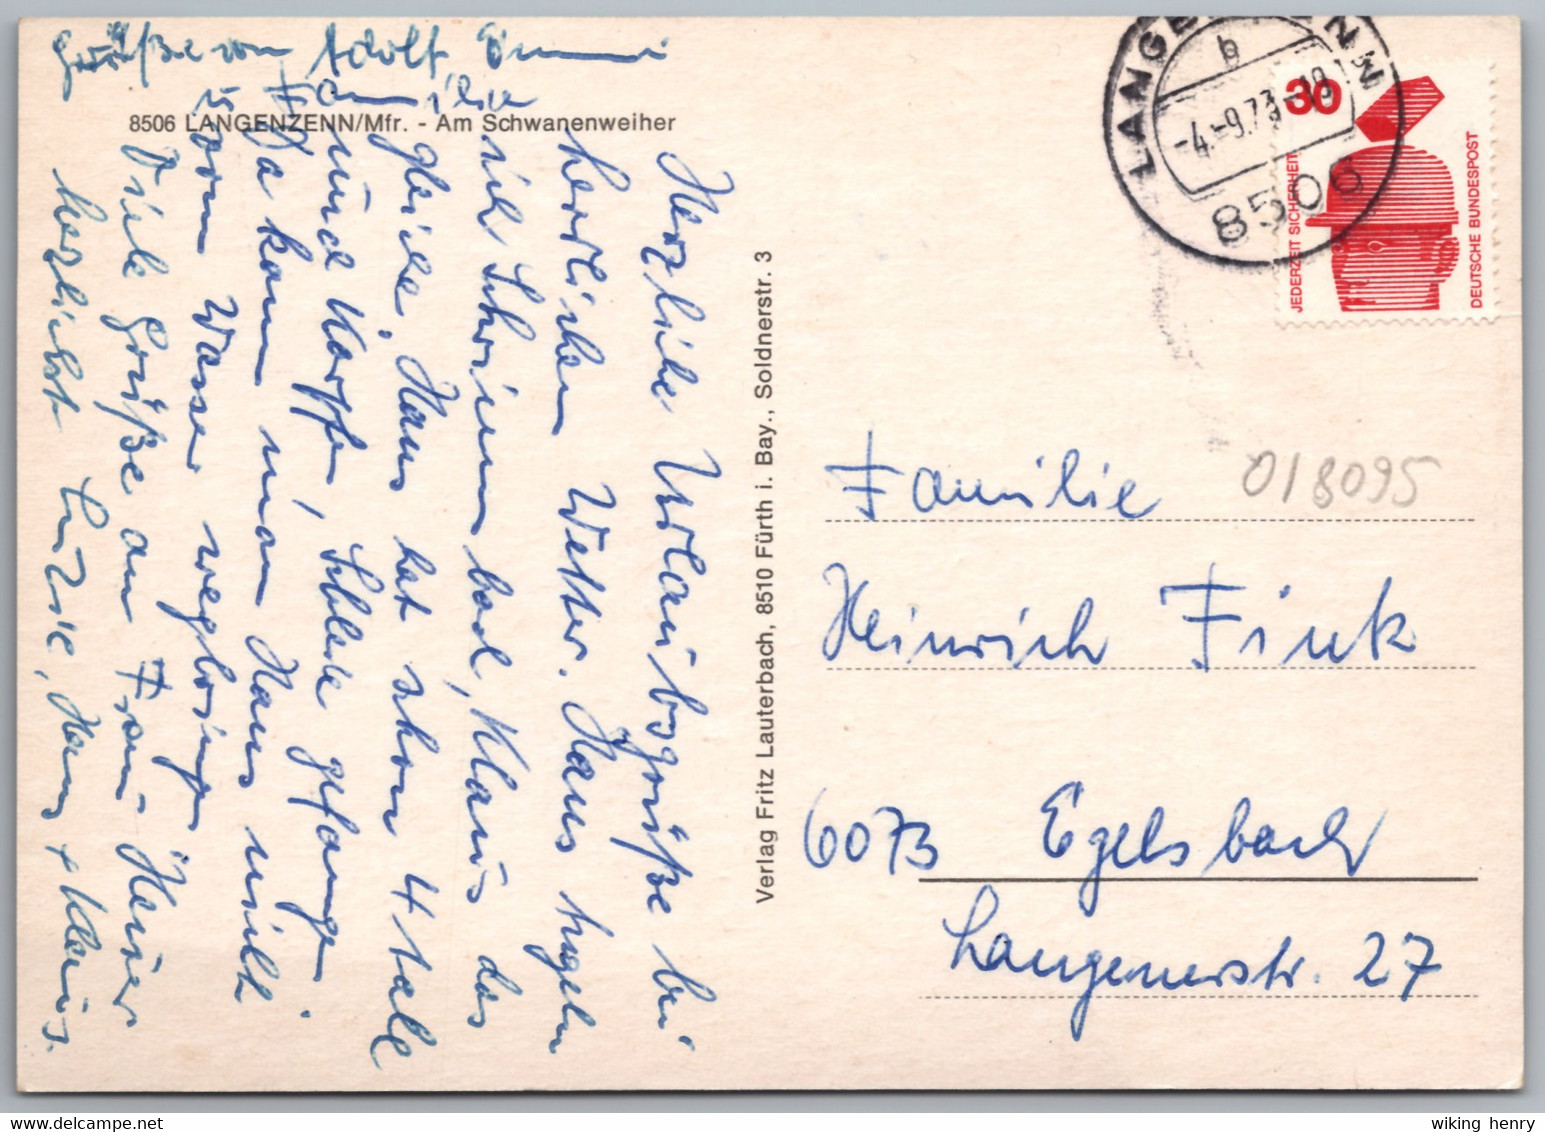 Grüße von Adolf, Emmi
8506 LANGENZENN/Mfr. - Am Schwanenweiher
Herzliche Urlaubsgrüße bei
herrlichen Wetter. Hans angeln
sich Schwimmbad, Klaus das
gleiche. Hans hat schon 4 Aale
und Karpfen, Schleie gefangen
Da kann man Hans nicht
vom Wasser wegbringen
Viele Grüße an Frau Heuser
herzlichst Luzie, Hans + Klaus.
Verlag Fritz Lauterbach, 8510 Fürth i. Bay., Soldnerstr. 3
LANGENZENN
b
-4.-9.73-18
8506
30
JEDERZEIT SICHERHEIT
DEUTSCHE BUNDESPOST
018095
Familie
Heinrich Fink
6073 Egelsbach
Langenerstr. 27
wiking henry